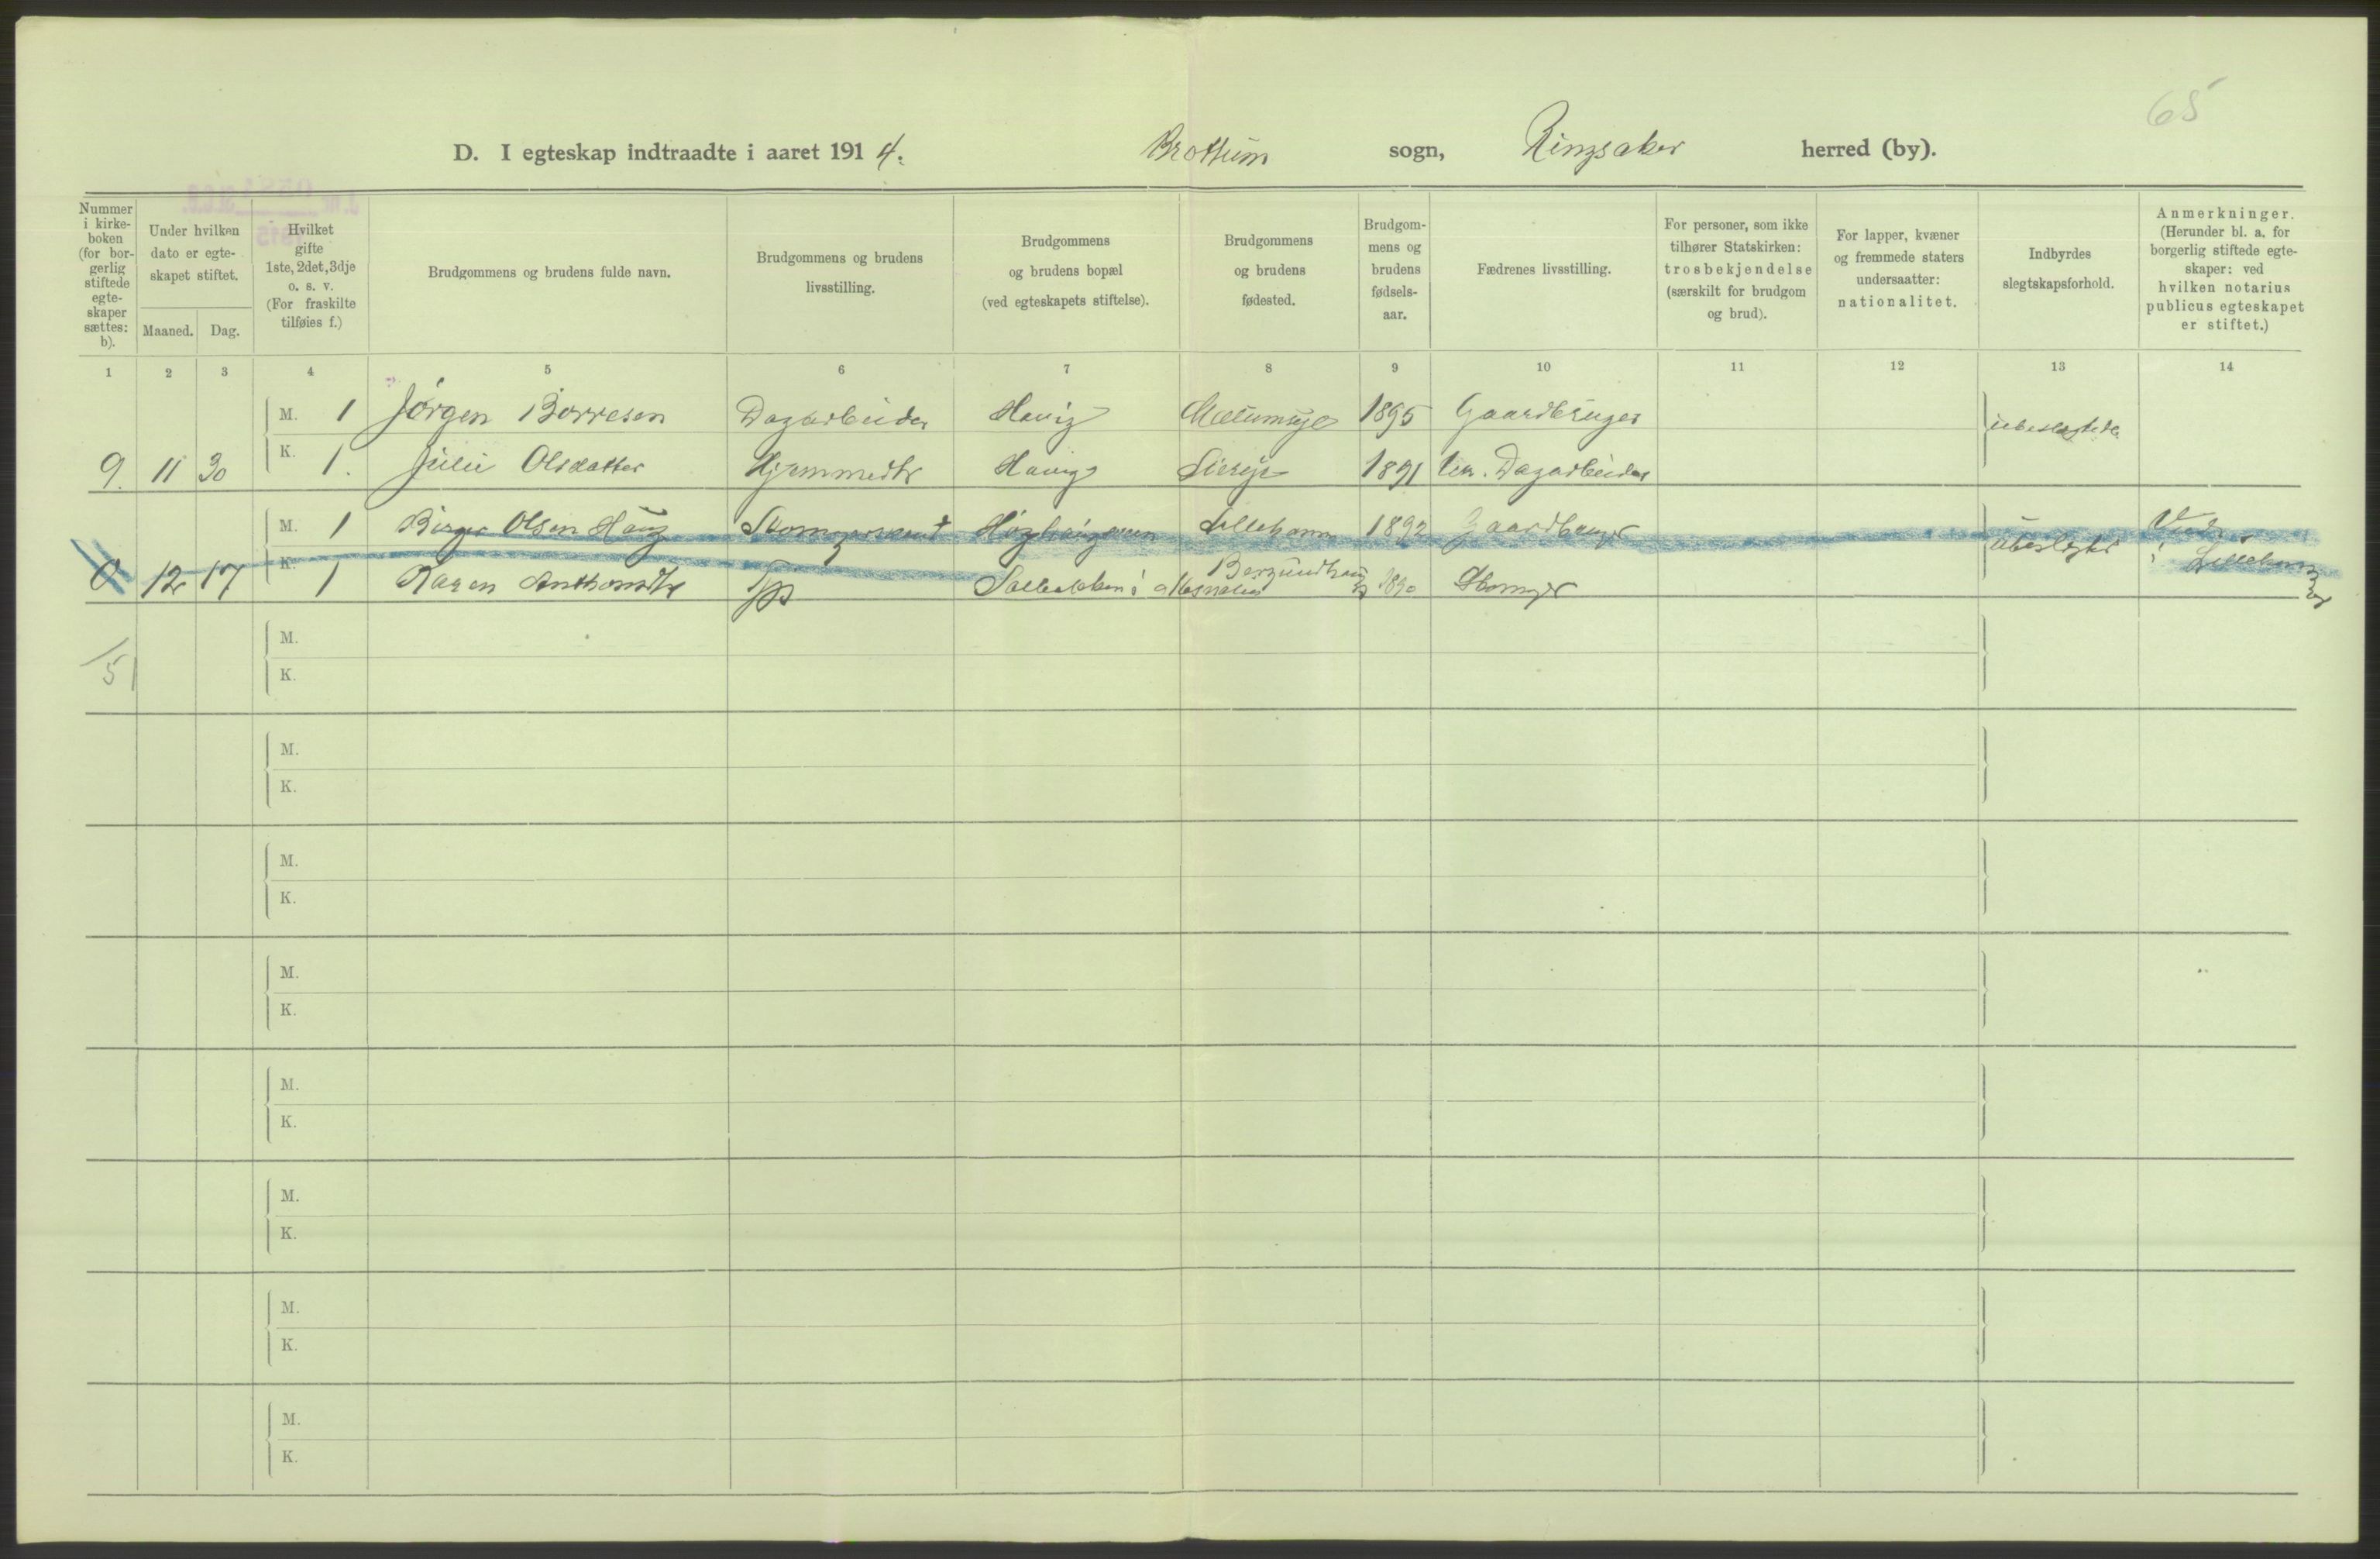 65
D. I egteskap indtraadte i aaret 1914. Brøttum sogn, Ringsaker herred (by).
Nummer i kirke- boken (for bor- gerlig stiftede egte- skaper sættes: b).
Under hvilken dato er egte- skapet stiftet.
Maaned. Dag.
Hvilket gifte 1ste, 2det, 3dje o. s. v. (For fraskilte tilføies f.)
Brudgommens og brudens fulde navn.
Brudgommens og brudens livsstilling.
Brudgommens og brudens bopæl (ved egteskapets stiftelse).
Brudgommens og brudens fødested.
Brudgom- mens og brudens fødsels- aar.
Fædrenes livsstilling.
For personer, som ikke tilhører Statskirken: trosbekjendelse (særskilt for brudgom og brud).
For lapper, kvæner og fremmede staters undersaatter: nationalitet.
Indbyrdes slegtskapsforhold.
Anmerkninger. (Herunder bl. a. for borgerlig stiftede egte- skaper: ved hvilken notarius publicus egteskapet er stiftet.)
1 2 3 4 5 6 7 8 9 10 11 12 13 14
M. 1 Jørgen Børresen Dagarbeider Haug 1895 Gaardbruger
ubeslegtede
9. 11 30 K. 1. Julie Olsdatter Hjemmedtr Haug Lieeje 1891 Dagarbeider
M. 1 Birger Olsen Haug Lillehammer 1892 Gaardbruger Viet
ubeslegtet i Lillehammer
0 12 17 K. 1 Karen Anthonsdtr i Mesnalien 1890 Skomager
51 M.
K.
M.
K.
M.
K.
M.
K.
M.
K.
M.
K.
M.
K.
M.
K.